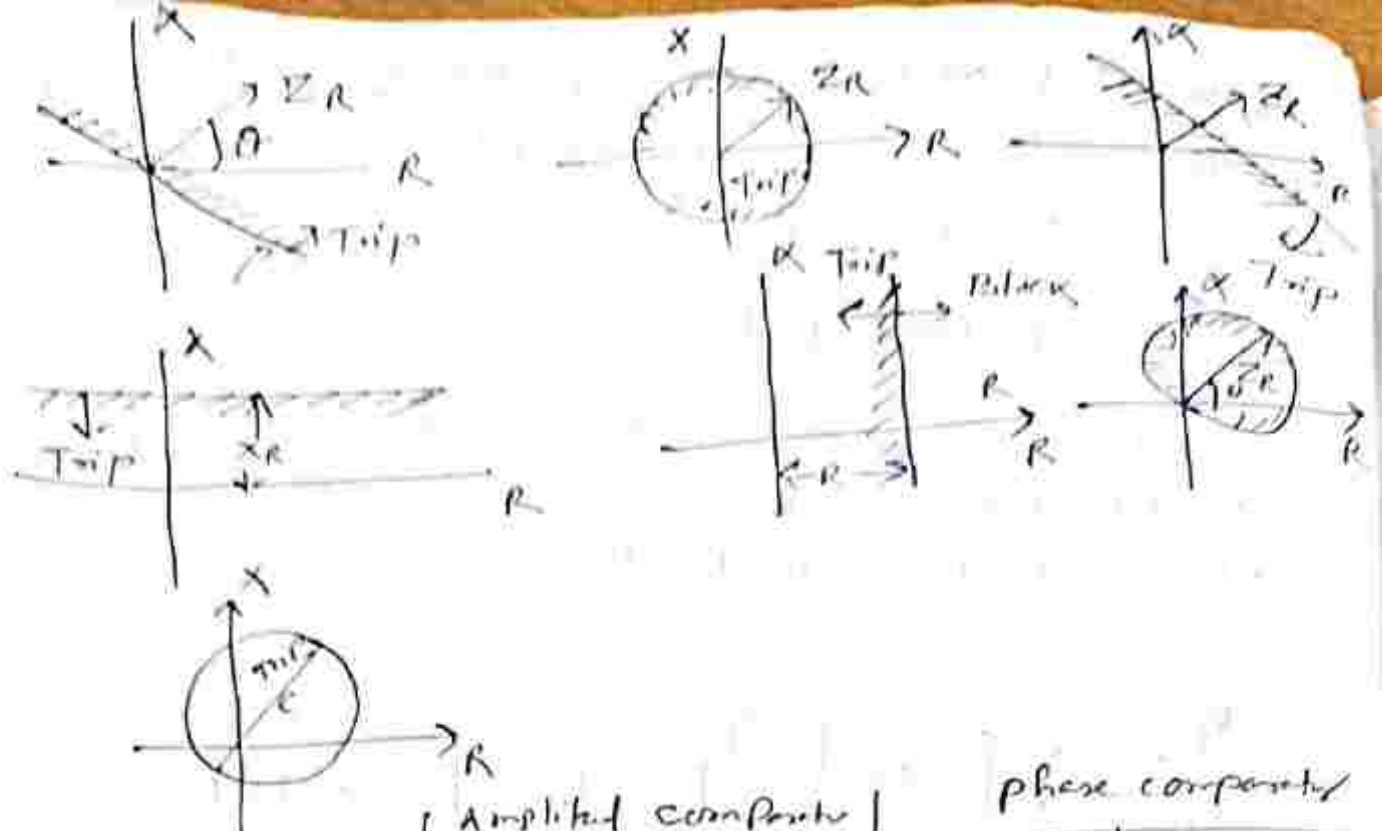 X
Z R
R
Trip
X
Z R
R
Trip
X
Z R
R
Trip
X
Trip
X R
R
X
Trip
R
R
R
X
Z R
R
X
Trip
C
R
Amplitud comparato
phase comparator